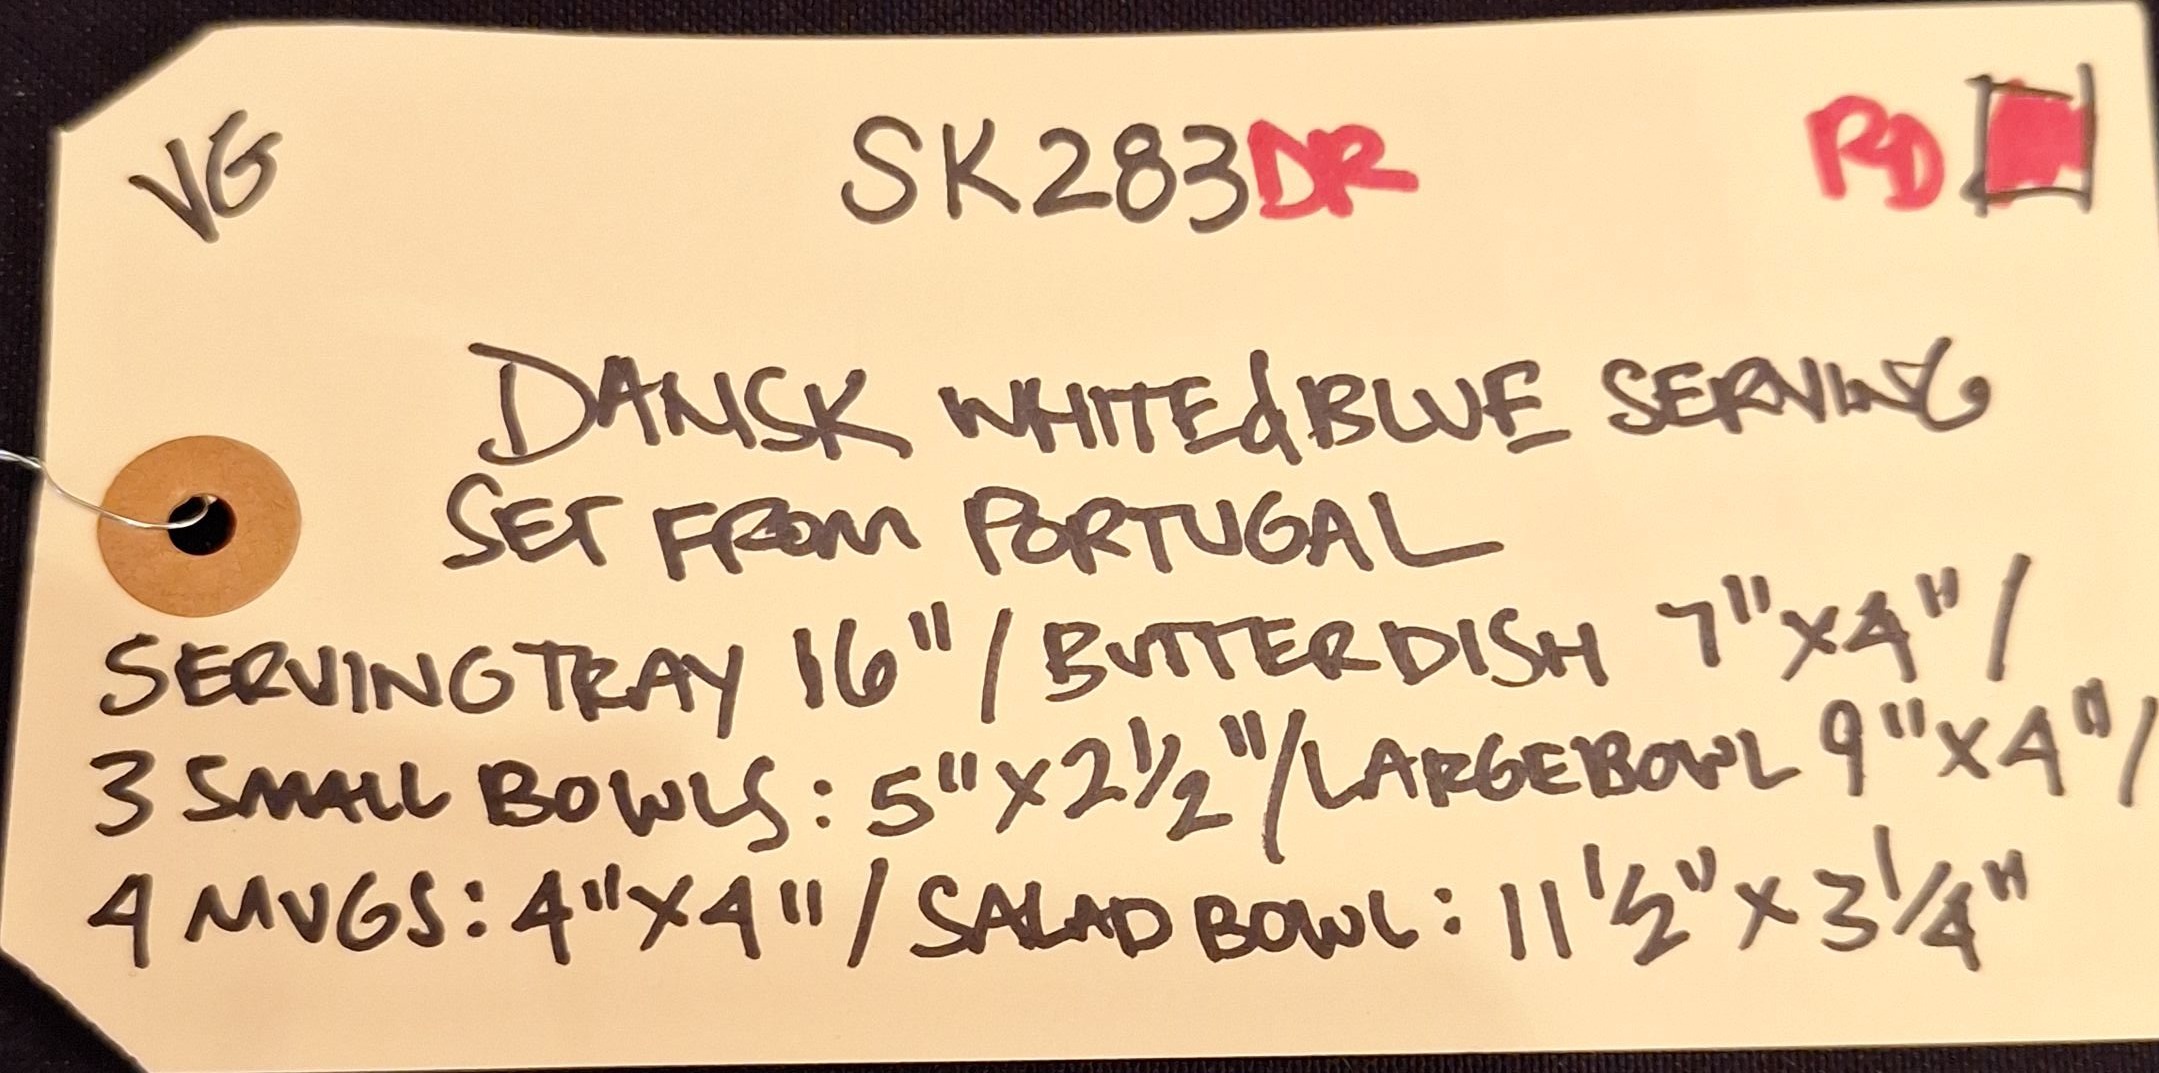 VG SK283DR RD
DANSK WHITE & BLUE SERVING
SET FROM PORTUGAL
SERVING TRAY 16" / BUTTER DISH 7" X 4" /
3 SMALL BOWLS: 5" X 2 1/2" / LARGE BOWL 9" X 4" /
4 MUGS: 4" X 4" / SALAD BOWL: 11 1/2" X 3 1/4"